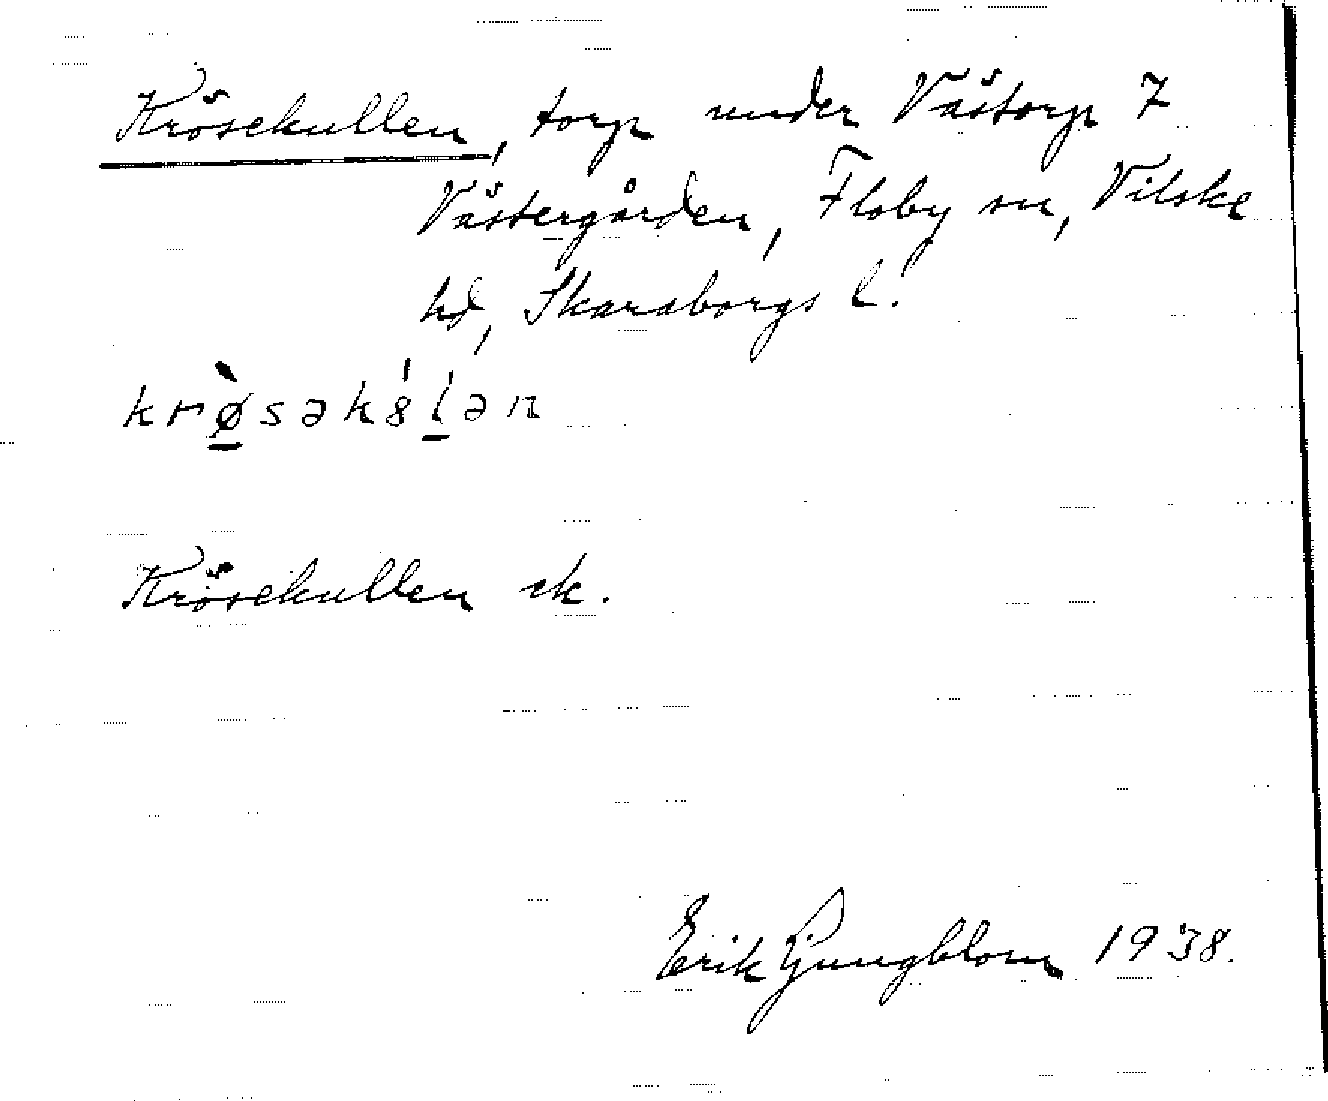 Krösekullen, torp under Västorp 7
Västergården, Floby sn, Vilske
hd, Skaraborgs l.
krø̀səkȣ́lən
Krösekullen ek.
Erik Ljungblom 1938.